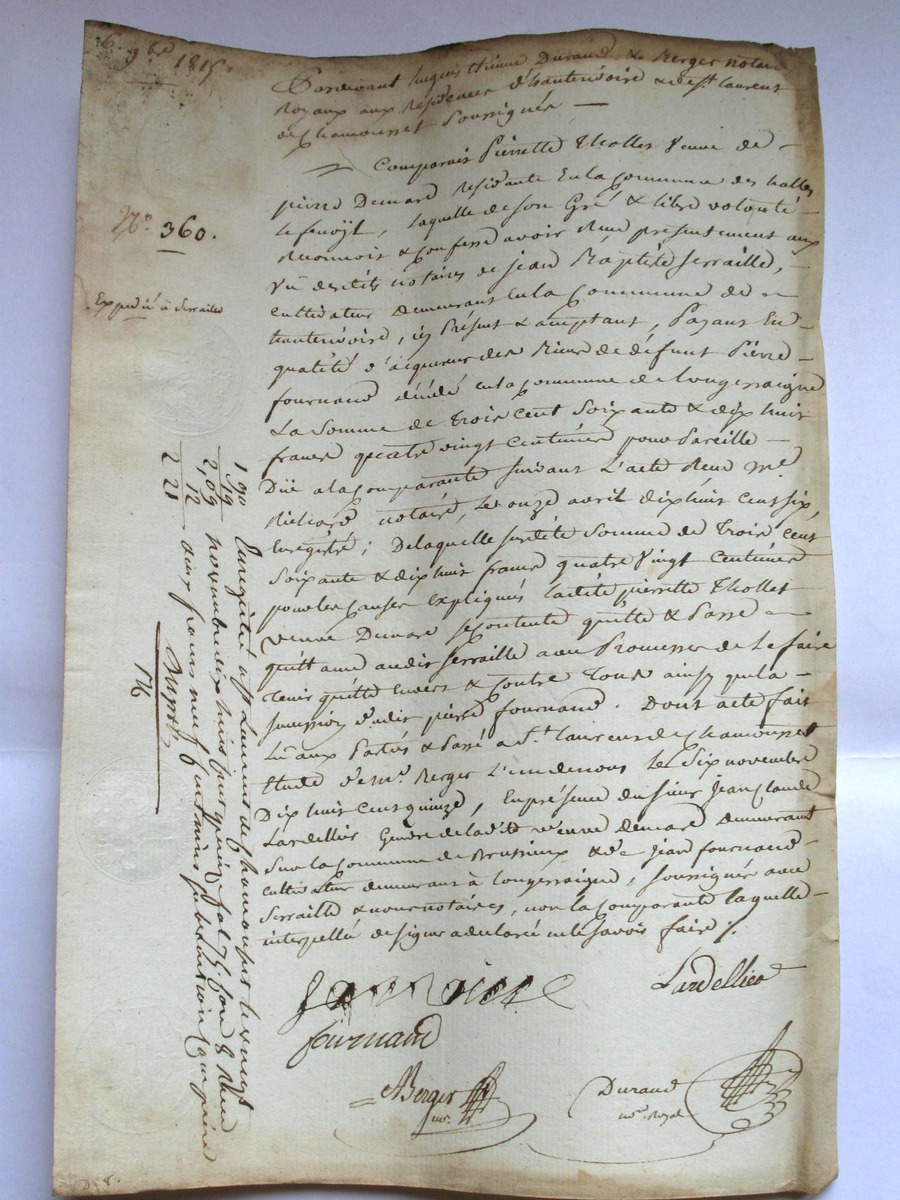 6. 9bre 1815.
Pardevant hugues Etienne Durand & Berger notaires
Royaux aux Résidences d'hauterivoire & de St. laurent
de Chamousset soussignés —
Comparait Pierrette Thollet Veuve de
pierre Demare Résidante En la Commune des halles
le fenoÿl, laquelle de son Gré & libre volonté
Reconnoit & Confesse avoir Reçu présentement aux
Vu desdits notaires de jean Baptiste Serraille,
cultivateur demeurant En la Commune de
hauterivoire, ici Présent & acceptant, Payant En
qualité d'acquereur des Biens de défunt Pierre
fournand décédé en la Commune de longessaigne
La Somme de Trois Cent Soixante & dix huit
francs quatre vingt Centimes pour Pareille
Düe a la Comparante suivant L'acte Reçu Me.
Richard notaire, Le onze avril dix huit cent six,
Enregistré; De laquelle susdite Somme de Trois Cent
Soixante & dix huit francs quatre Vingt Centimes
pour les Causes Expliquées ladite pierrette Thollet
veuve Demare se Contente quitte & Passe
quittance audit Serraille avec Promesse de Le faire
Tenir quitte Envers & Contre Tous ainsy que la
succession dudit pierre fournand. Dont acte fait
lû aux Parties & Passé a St. laurent de Chamousset
Etude de Me. Berger L'un de nous Le Six novembre
Dix huit Cent quinze, En présence du sieur Jean Claude
Lardellier Gendre de ladite veuve demare demeurant
Sur la Commune de Brussieux & de jean fournand
cultivateur demeurant à longessaigne, soussignés avec
Serraille & nous notaires, non la Comparante laquelle
interpellée de signer a declaré ne le Savoir faire /.
Serraille
Lardellier
fournand
Berger
nre.
Durand
nre. Royal
No. 360.
Expedié à Serraille
1,90
19
2,09
12
2 21
Enregistré à St Laurent de chamousset le vingt
novembre dix huit cent quinze fol. 75. Case 8 Reçu
deux francs neuf centimes subvention comprise